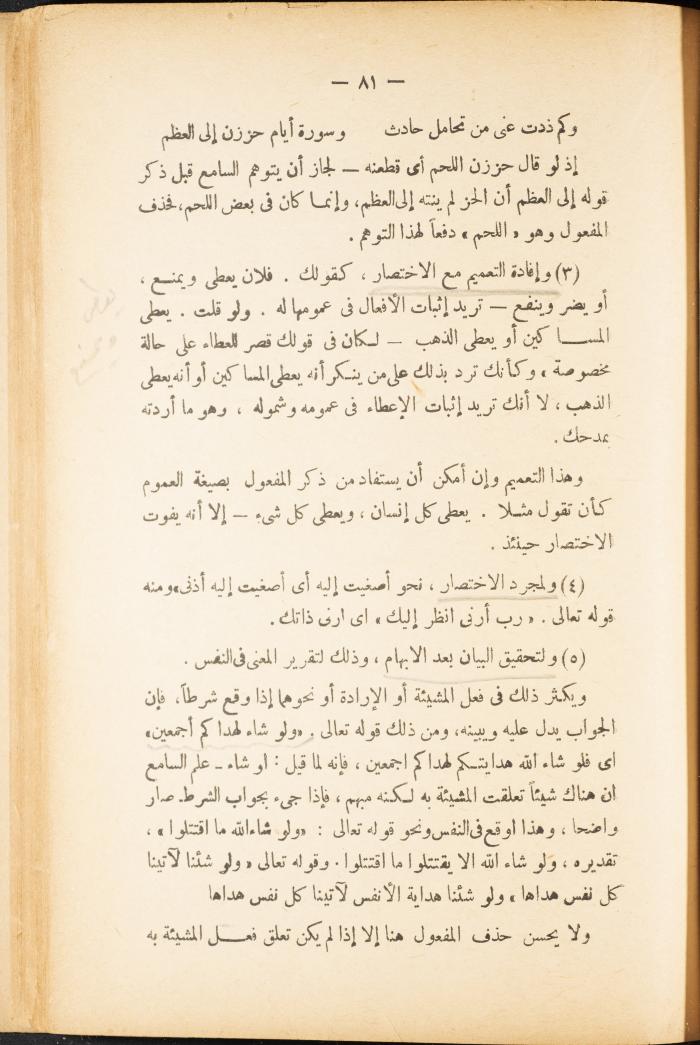 — ٨١ —
وكم ذدت عنى من تحامل حادث وسورة أيام حززن إلى العظم
إذ لو قال حززن اللحم أى قطعنه — لجاز أن يتوهم السامع قبل ذكر
قوله إلى العظم أن الحز لم ينته إلى العظم، وإنما كان فى بعض اللحم، فحذف
المفعول وهو « اللحم » دفعاً لهذا التوهم .
(٣) وإفادة التعميم مع الاختصار ، كقولك . فلان يعطى ويمنع ،
أو يضر وينفع — تريد إثبات الأفعال فى عمومها له . ولو قلت . يعطى
المساكين أو يعطى الذهب — لكان فى قولك قصر للعطاء على حالة
مخصوصة ، وكأنك ترد بذلك على من ينكر أنه يعطى المساكين أو أنه يعطى
الذهب ، لا أنك تريد إثبات الإعطاء فى عمومه وشموله ، وهو ما أردته
بمدحك .
وهذا التعميم وإن أمكن أن يستفاد من ذكر المفعول بصيغة العموم
كأن تقول مثلا . يعطى كل إنسان ، ويعطى كل شىء — إلا أنه يفوت
الاختصار حينئذ .
(٤) ولمجرد الاختصار ، نحو أصغيت إليه أى أصغيت إليه أذنى، ومنه
قوله تعالى . « رب أرنى انظر إليك » اى ارنى ذاتك .
(٥) ولتحقيق البيان بعد الابهام ، وذلك لتقرير المعنى فى النفس .
ويكثر ذلك فى فعل المشيئة أو الإرادة أو نحوهما إذا وقع شرطاً، فإن
الجواب يدل عليه ويبينه، ومن ذلك قوله تعالى . «ولو شاء لهداكم أجمعين»
اى فلو شاء الله هدايتكم لهداكم اجمعين ، فإنه لما قيل : او شاء — علم السامع
ان هناك شيئاً تعلقت المشيئة به لكنه مبهم ، فإذا جىء بجواب الشرط صار
واضحا ، وهذا اوقع فى النفس ونحو قوله تعالى : «ولو شاء الله ما اقتتلوا » ،
تقديره ، ولو شاء الله الا يقتتلوا ما اقتتلوا . وقوله تعالى « ولو شئنا لآتينا
كل نفس هداها » ولو شئنا هداية الأنفس لآتينا كل نفس هداها
ولا يحسن حذف المفعول هنا إلا إذا لم يكن تعلق فعل المشيئة به
يعطى
ويمنع